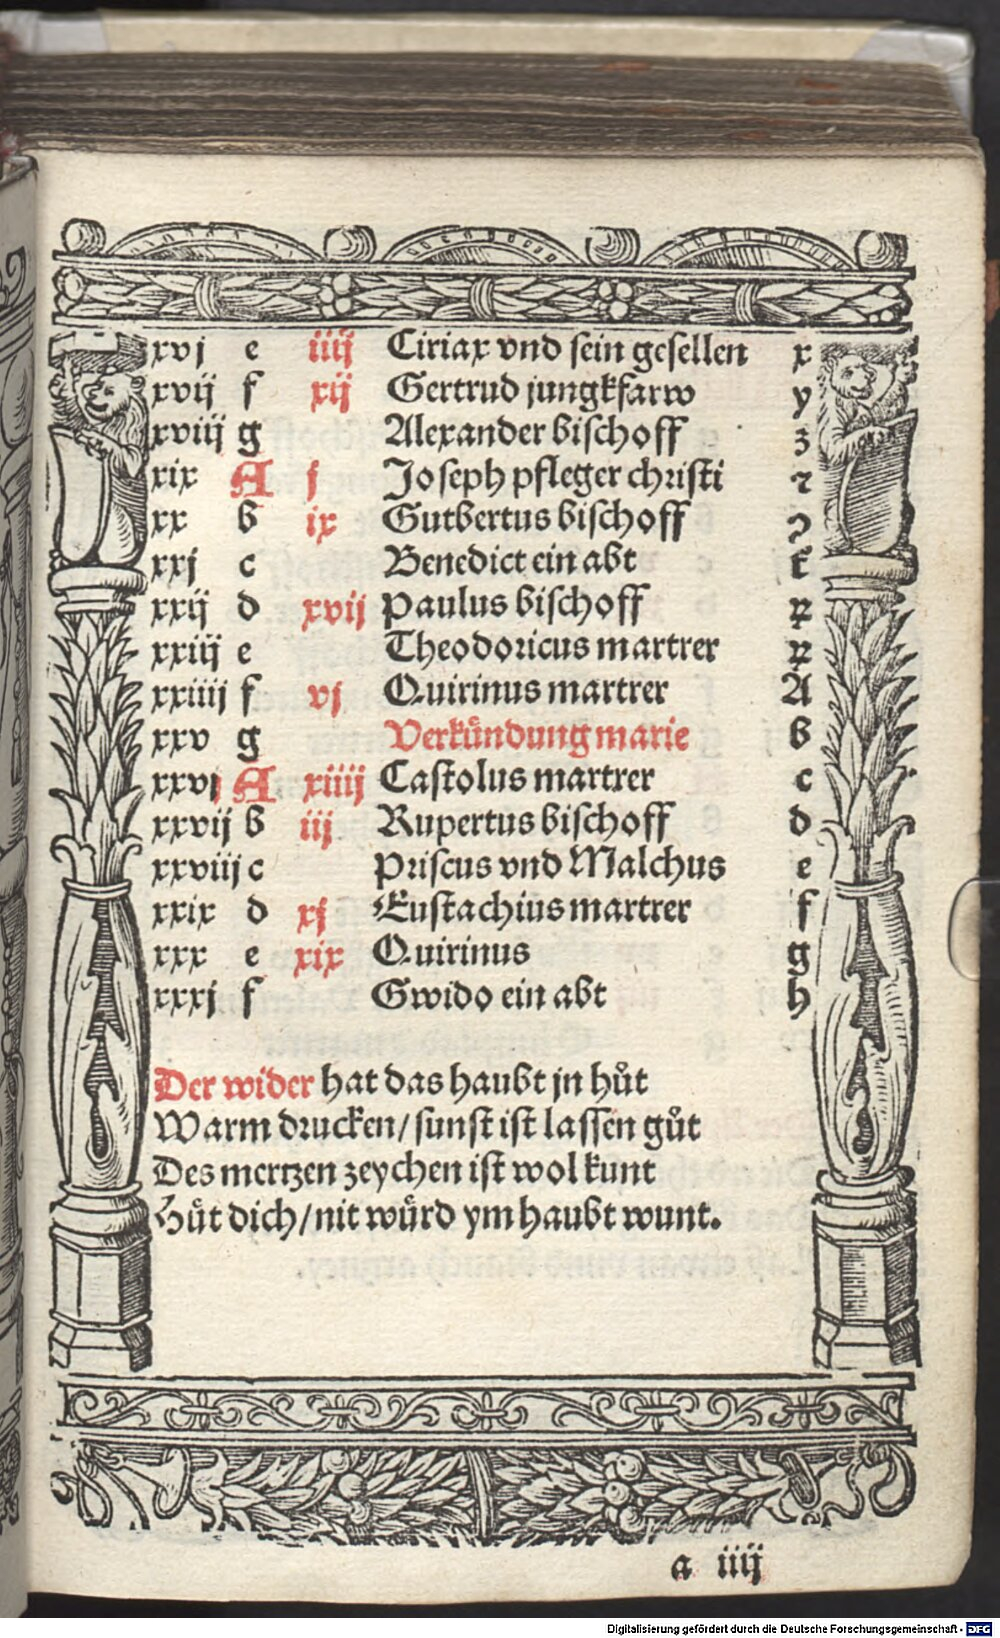 xvj e iiij Ciriax vnd sein gesellen x
xvij f xij Gertrud jungkfarw y
xviij g Alexander bischoff z
xix A j Joseph pfleger christi ⁊
xx b ix Gutbertus bischoff ꝯ
xxj c Benedict ein abt
xxij d xvij Paulus bischoff
xxiij e Theodoricus martrer
xxiiij f vj Quirinus martrer A
xxv g Verkündung marie b
xxvj A xiiij Castolus martrer c
xxvij b iij Rupertus bischoff d
xxviij c Priscus vnd Malchus e
xxix d xj Eustachius martrer f
xxx e xix Quirinus g
xxxj f Gwido ein abt h
Der wider hat das haubt jn hůt
Warm drucken/ sunst ist lassen gůt
Des mertzen zeychen ist wol kunt
Hüt dich/ nit würd ym haubt wunt.
a iiij
Digitalisierung gefördert durch die Deutsche Forschungsgemeinschaft - DFG